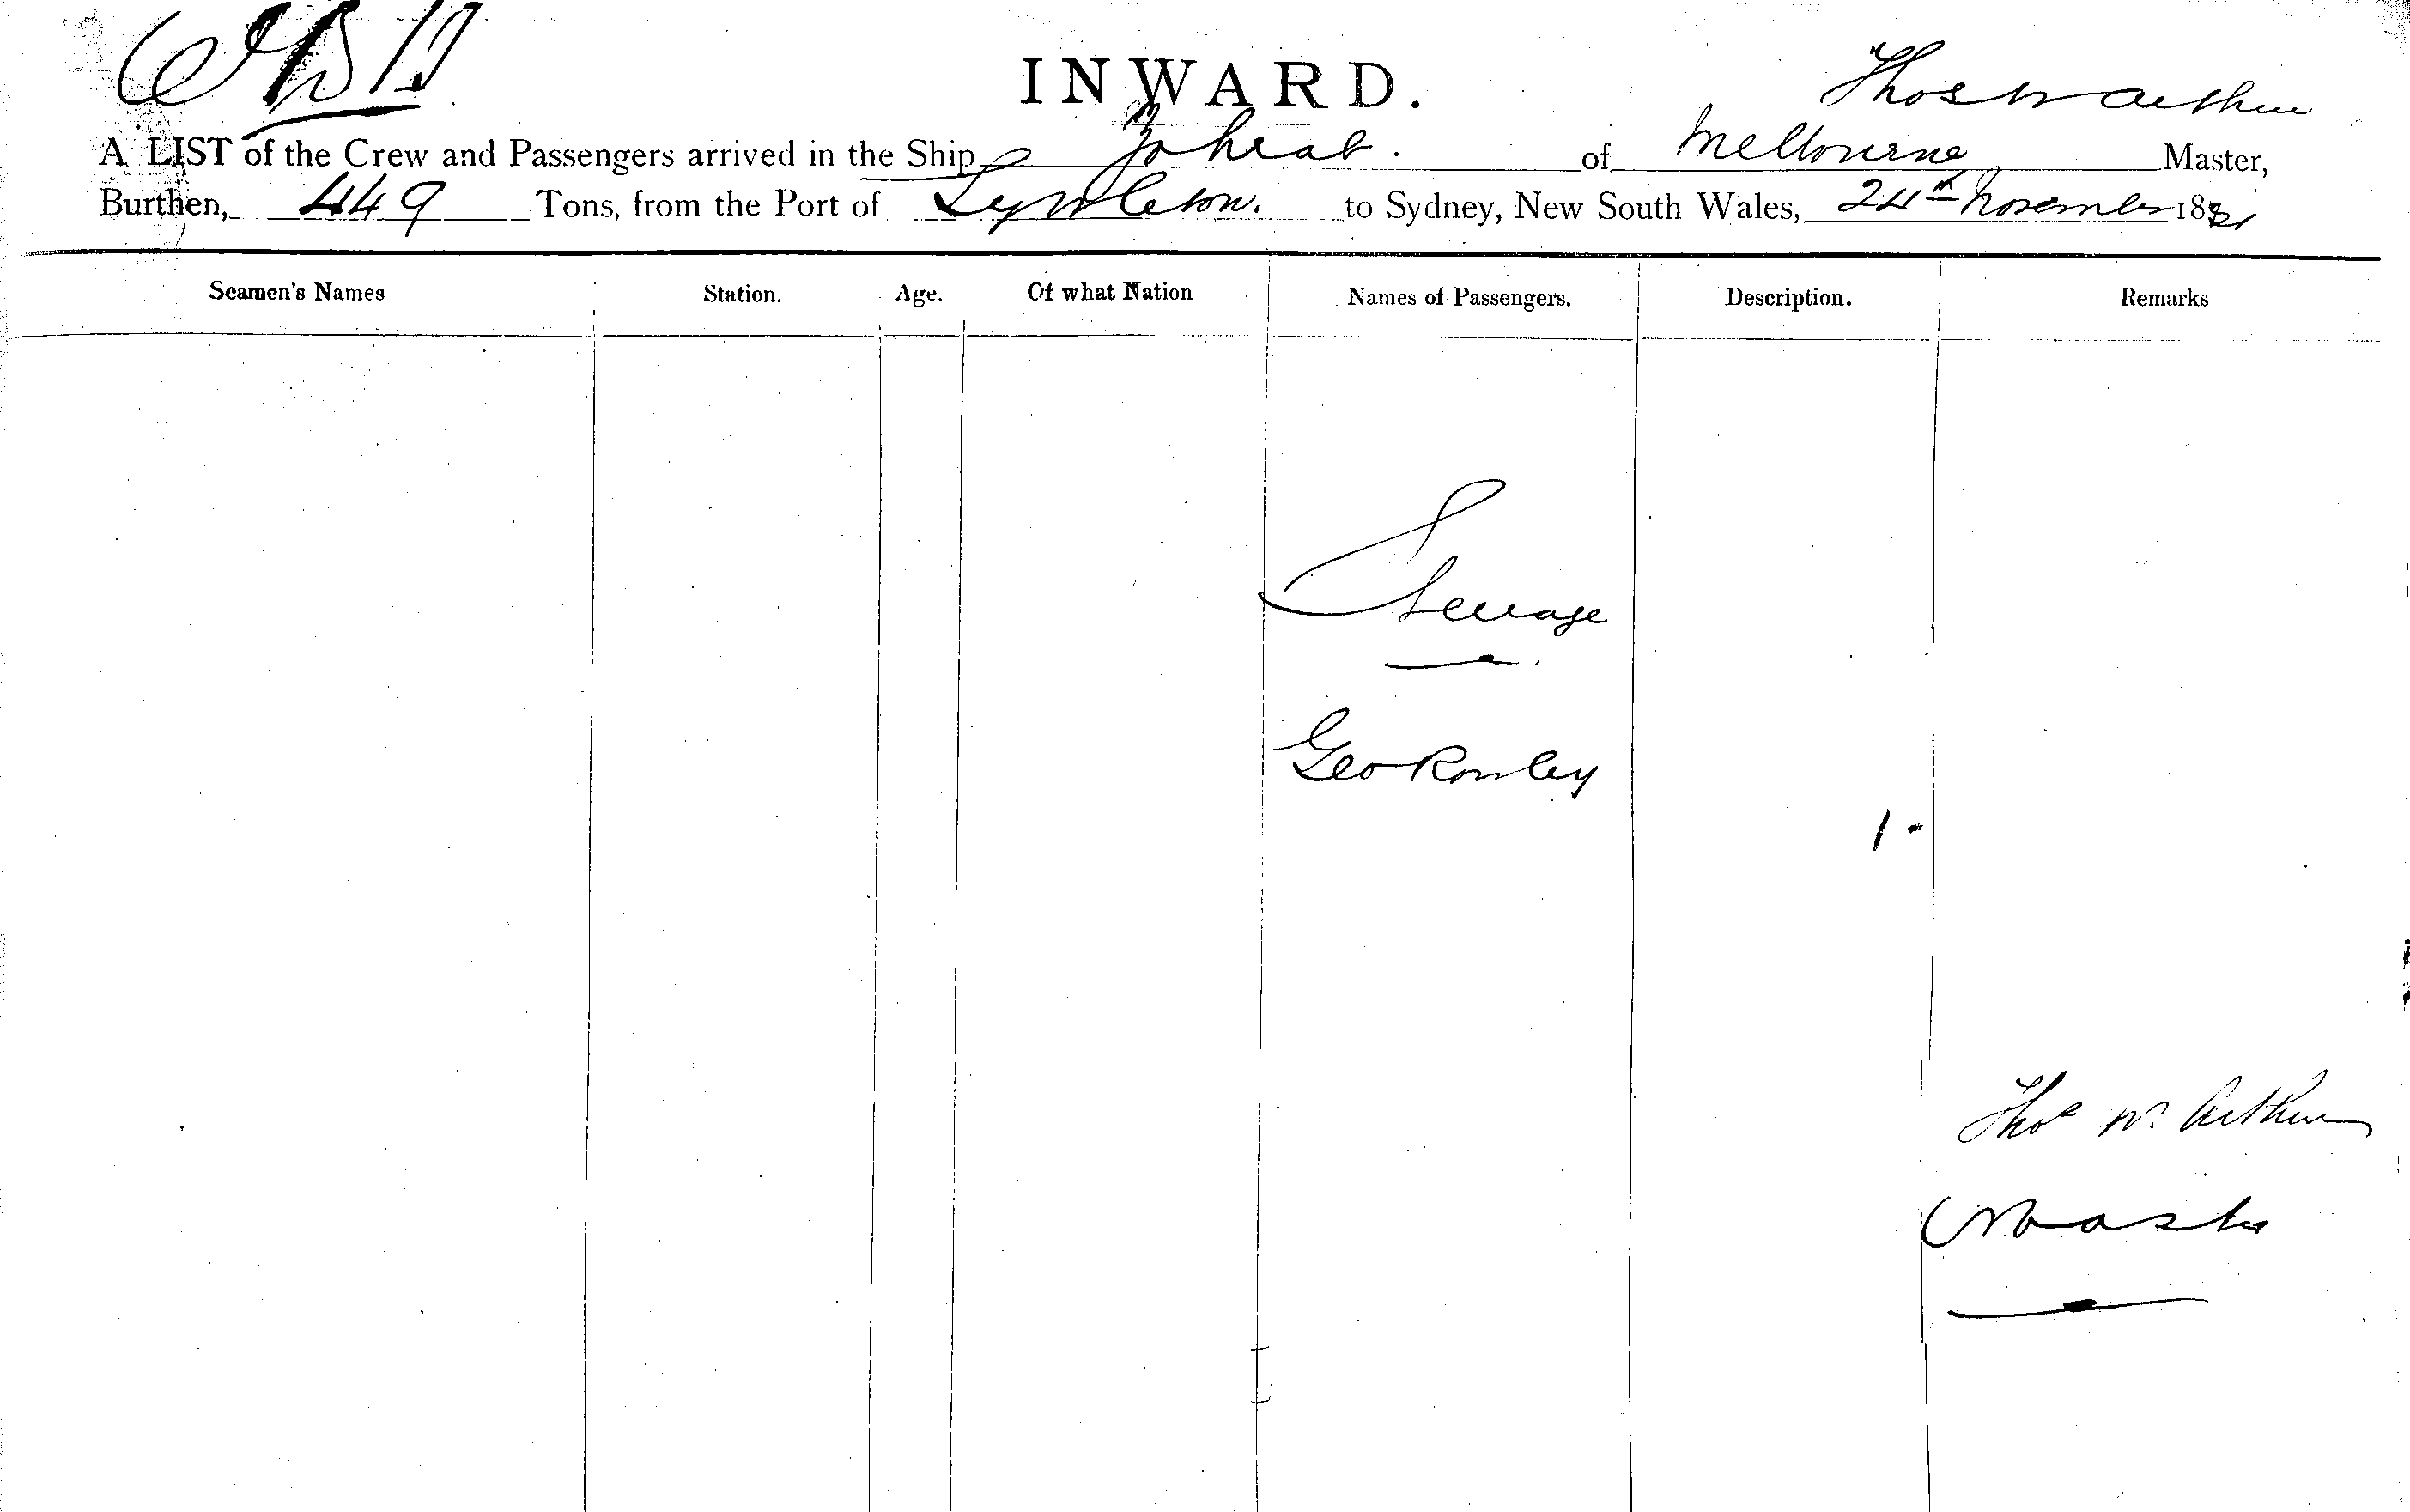 INWARD.
Thos W Arthur
A LIST of the Crew and Passengers arrived in the Ship Zohrab. of Melbourne Master,
Burthen, 449 Tons, from the Port of Lyttleton. to Sydney, New South Wales, 24th November 1881
Seamen's Names Station. Age. Of what Nation Names of Passengers. Description. Remarks
Geo Rowley
1
Thos W. Arthur
Master